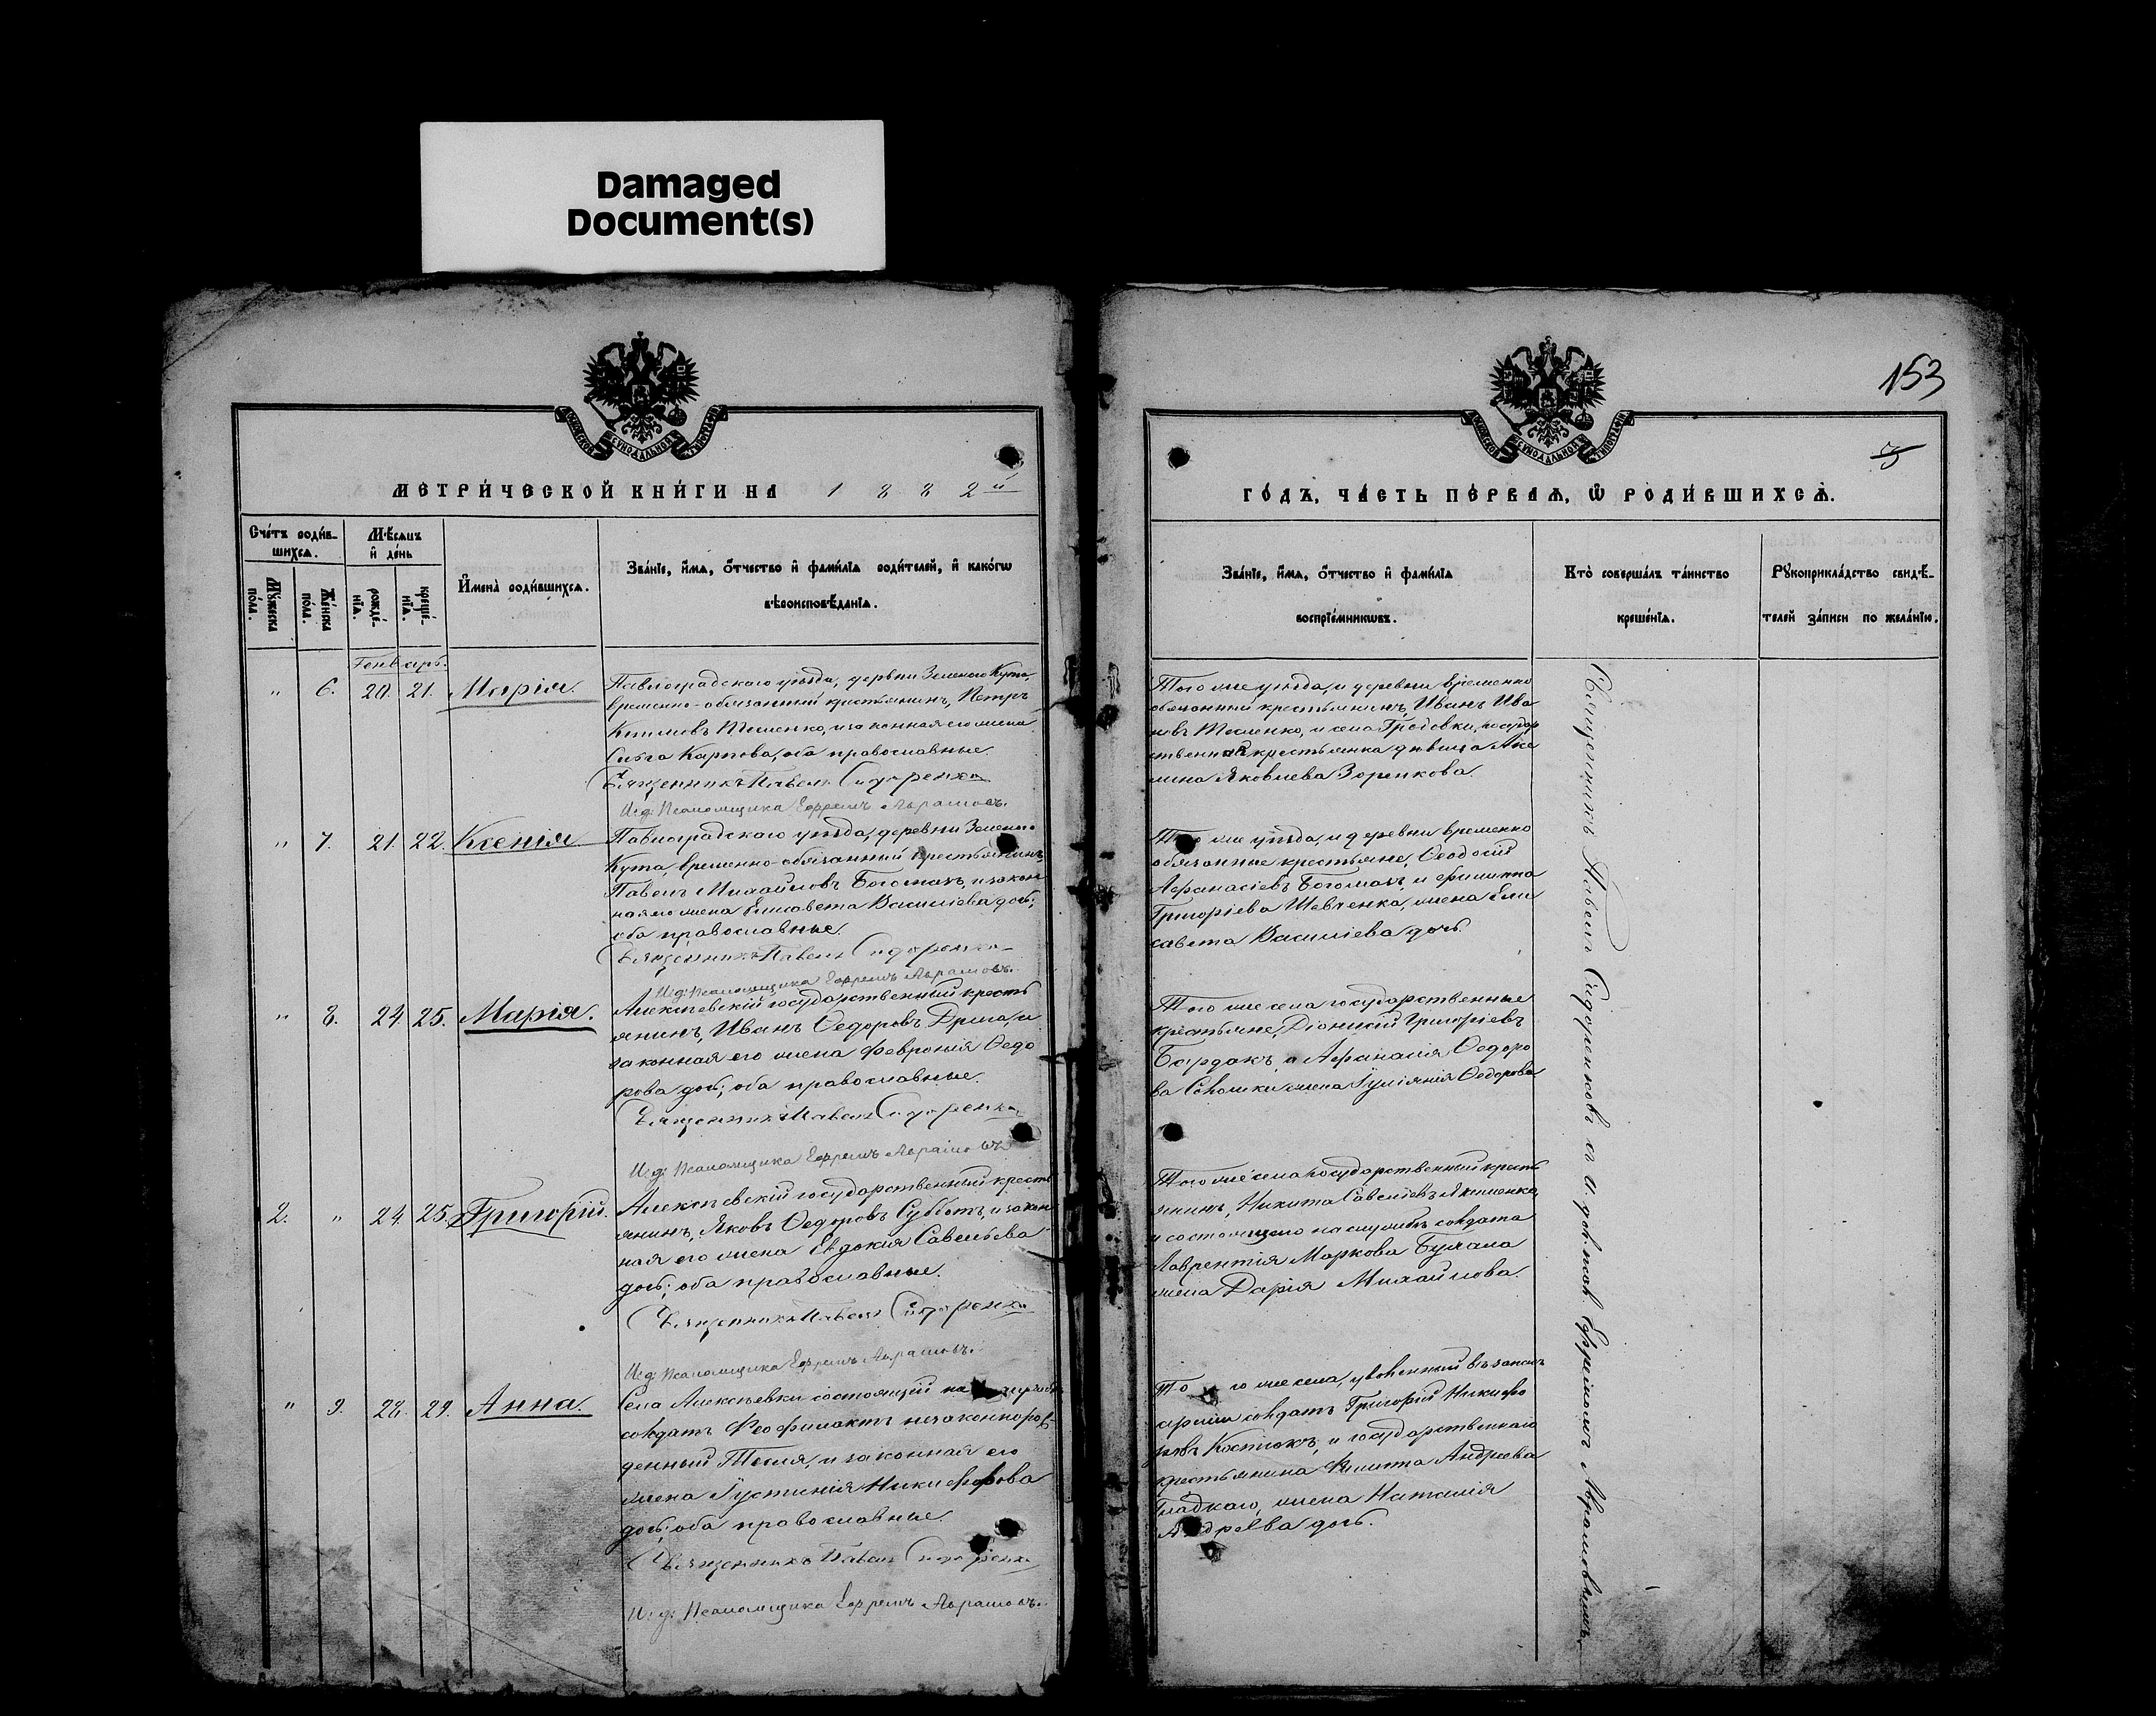 Damaged
Document(s)
153
МОСКОВСКОЙ СѴНОДАЛЬНОЙ ТИПОГРАФІИ
МОСКОВСКОЙ СѴНОДАЛЬНОЙ ТИПОГРАФІИ
3
МЕТРИ́ЧЕСКОЙ КНИ́ГИ НА 1882й
ГО́ДЪ, ЧА́СТЬ ПЕ́РВАѦ, Ѿ РОДИ́ВШИХСѦ.
Сче́тъ роди́в-
шихсѧ.
Мꙋ́жеска по́ла.
Же́нска по́ла.
Мѣ́сѧцъ
и҆ де́нь
рожде́-
нїѧ.
креще́-
нїѧ.
И҆мена̀ роди́вшихсѧ.
Зва́нїе, и҆́мѧ, ѻ҆́тчество и҆ фами́лїѧ роди́телей, и҆ како́гѡ
вѣроисповѣ́данїѧ.
Зва́нїе, и҆́мѧ, ѻ҆́тчество и҆ фами́лїѧ
воспрїе́мникѡвъ.
Кто̀ соверша́лъ та́инство
креще́нїѧ.
Рꙋкоприкла́дство свидѣ́-
телей за́писи по жела́нїю.
Генварь.
" 6. 20. 21. Марія.
Павлоградскаго уѣзда, деревни Зеленаго Кута,
временно-обязанный крестьянинъ, Петръ
Климовъ Тименко, и законная его жена
Ольга Карпова, оба православные.
Священникъ Павелъ Сидоренко
И: д: Псаломщика Ефремъ Аврамовъ.
Того же уѣзда, и деревни временно
обязанный крестьянинъ, Иванъ Ива
новъ Тименко, и села Гродовки, государ
ственная крестьянка дѣвица Аке
лина Яковлева Зоренкова.
" 7. 21. 22. Ксенія
Павлоградскаго уѣзда, деревни Зеленаго
Кута, временно-обязанный крестьянинъ,
Павелъ Михайловъ Богомазъ, и закон
ная его жена Елисавета Василіева дочь;
оба православные.
Священникъ Павелъ Сидоренко
И: д: Псаломщика Ефремъ Аврамовъ.
Того же уѣзда, и деревни временно
обязанные крестьяне, Ѳеодосій
Аѳанасіевъ Богомазъ, и Филиппа
Григоріева Шевченка, жена Ели
савета Василіева дочь.
" 8. 24. 25. Марія.
Алексѣевскій государственный кресть
янинъ, Иванъ Ѳедоровъ Дрига, и
законная его жена Февронія Ѳедо
рова дочь; оба православные.
Священникъ Павелъ Сидоренко
И: д: Псаломщика Ефремъ Аврамовъ
Того же села государственные
крестьяне, Діонисій Григоріевъ
Бардакъ, и Аѳанасія Ѳедоро
ва жена Іуліянія Ѳедорова
2. " 24. 25. Григорій.
Алексѣевскій государственный кресть
янинъ, Яковъ Ѳедоровъ Субботъ, и закон
ная его жена Евдокія Савельева
дочь; оба православные.
Священникъ Павелъ Сидоренко
И: д: Псаломщика Ефремъ Аврамовъ.
Того же села государственный кресть
янинъ, Никита Савеліевъ Якименко,
и состоящаго на службѣ солдата
Лаврентія Маркова
жена Дарія Михайлова.
" 9. 28. 29. Анна.
Села Алексѣевки состоящій на службѣ
солдатъ Феофилактъ незаконнорож-
денный Тесля, и законная его
жена Іустинія Никифорова
дочь; оба православные.
Священникъ Павелъ Сидоренко
И: д: Псаломщика Ефремъ Аврамовъ.
Того же села, уволенный въ запасъ
арміи солдатъ Григорій Никифо
ровъ Костюкъ, и государственнаго
крестьянина Филиппа Андреева
Гладкаго, жена Наталія
Андреева дочь.
Священникъ Павелъ Сидоренковъ съ и. д. Ефремомъ Аврамовымъ.